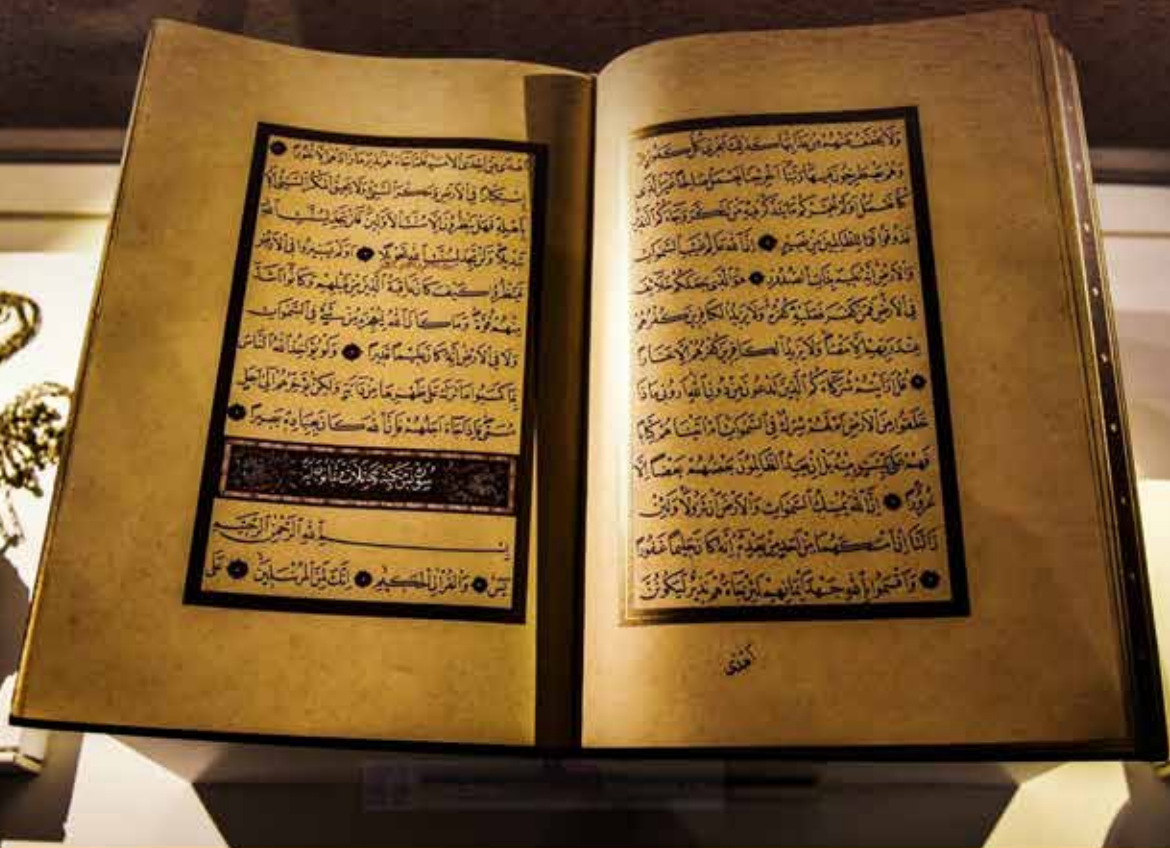 وَلَا يُخَفَّفُ عَنْهُمْ مِنْ عَذَابِهَا كَذٰلِكَ نَجْزِي كُلَّ كَفُورٍ
وَهُمْ يَصْطَرِخُونَ فِيهَا رَبَّنَا أَخْرِجْنَا نَعْمَلْ صَالِحًا غَيْرَ الَّذِي
كُنَّا نَعْمَلُ أَوَلَمْ نُعَمِّرْكُمْ مَا يَتَذَكَّرُ فِيهِ مَنْ تَذَكَّرَ وَجَاءَكُمُ النَّذِيرُ
فَذُوقُوا فَمَا لِلظَّالِمِينَ مِنْ نَصِيرٍ ۝ إِنَّ اللهَ عَالِمُ غَيْبِ السَّمٰوَاتِ
وَالْأَرْضِ إِنَّهُ عَلِيمٌ بِذَاتِ الصُّدُورِ ۝ هُوَ الَّذِي جَعَلَكُمْ خَلَائِفَ
فِي الْأَرْضِ فَمَنْ كَفَرَ فَعَلَيْهِ كُفْرُهُ وَلَا يَزِيدُ الْكَافِرِينَ كُفْرُهُمْ
عِنْدَ رَبِّهِمْ إِلَّا مَقْتًا وَلَا يَزِيدُ الْكَافِرِينَ كُفْرُهُمْ إِلَّا خَسَارًا
۝ قُلْ أَرَأَيْتُمْ شُرَكَاءَكُمُ الَّذِينَ تَدْعُونَ مِنْ دُونِ اللهِ أَرُونِي مَاذَا
خَلَقُوا مِنَ الْأَرْضِ أَمْ لَهُمْ شِرْكٌ فِي السَّمٰوَاتِ أَمْ آتَيْنَاهُمْ كِتَابًا
فَهُمْ عَلَى بَيِّنَتٍ مِنْهُ بَلْ إِنْ يَعِدُ الظَّالِمُونَ بَعْضُهُمْ بَعْضًا إِلَّا
غُرُورًا ۝ إِنَّ اللهَ يُمْسِكُ السَّمٰوَاتِ وَالْأَرْضَ أَنْ تَزُولَا وَلَئِنْ
زَالَتَا إِنْ أَمْسَكَهُمَا مِنْ أَحَدٍ مِنْ بَعْدِهِ إِنَّهُ كَانَ حَلِيمًا غَفُورًا
۝ وَأَقْسَمُوا بِاللهِ جَهْدَ أَيْمَانِهِمْ لَئِنْ جَاءَهُمْ نَذِيرٌ لَيَكُونُنَّ
أَهْدٰى
أَهْدٰى مِنْ إِحْدَى الْأُمَمِ فَلَمَّا جَاءَهُمْ نَذِيرٌ مَا زَادَهُمْ إِلَّا نُفُورًا ۝
اسْتِكْبَارًا فِي الْأَرْضِ وَمَكْرَ السَّيِّئِ وَلَا يَحِيقُ الْمَكْرُ السَّيِّئُ إِلَّا
بِأَهْلِهِ فَهَلْ يَنْظُرُونَ إِلَّا سُنَّتَ الْأَوَّلِينَ فَلَنْ تَجِدَ لِسُنَّتِ اللهِ
تَبْدِيلًا وَلَنْ تَجِدَ لِسُنَّتِ اللهِ تَحْوِيلًا ۝ أَوَلَمْ يَسِيرُوا فِي الْأَرْضِ
فَيَنْظُرُوا كَيْفَ كَانَ عَاقِبَةُ الَّذِينَ مِنْ قَبْلِهِمْ وَكَانُوا أَشَدَّ
مِنْهُمْ قُوَّةً وَمَا كَانَ اللهُ لِيُعْجِزَهُ مِنْ شَيْءٍ فِي السَّمٰوَاتِ
وَلَا فِي الْأَرْضِ إِنَّهُ كَانَ عَلِيمًا قَدِيرًا ۝ وَلَوْ يُؤَاخِذُ اللهُ النَّاسَ
بِمَا كَسَبُوا مَا تَرَكَ عَلَى ظَهْرِهَا مِنْ دَابَّةٍ وَلٰكِنْ يُؤَخِّرُهُمْ إِلَى أَجَلٍ
مُسَمًّى فَإِذَا جَاءَ أَجَلُهُمْ فَإِنَّ اللهَ كَانَ بِعِبَادِهِ بَصِيرًا ۝
بِسْمِ اللهِ الرَّحْمٰنِ الرَّحِيمِ
يٰسٓ ۝ وَالْقُرْآنِ الْحَكِيمِ ۝ إِنَّكَ لَمِنَ الْمُرْسَلِينَ ۝ عَلَى